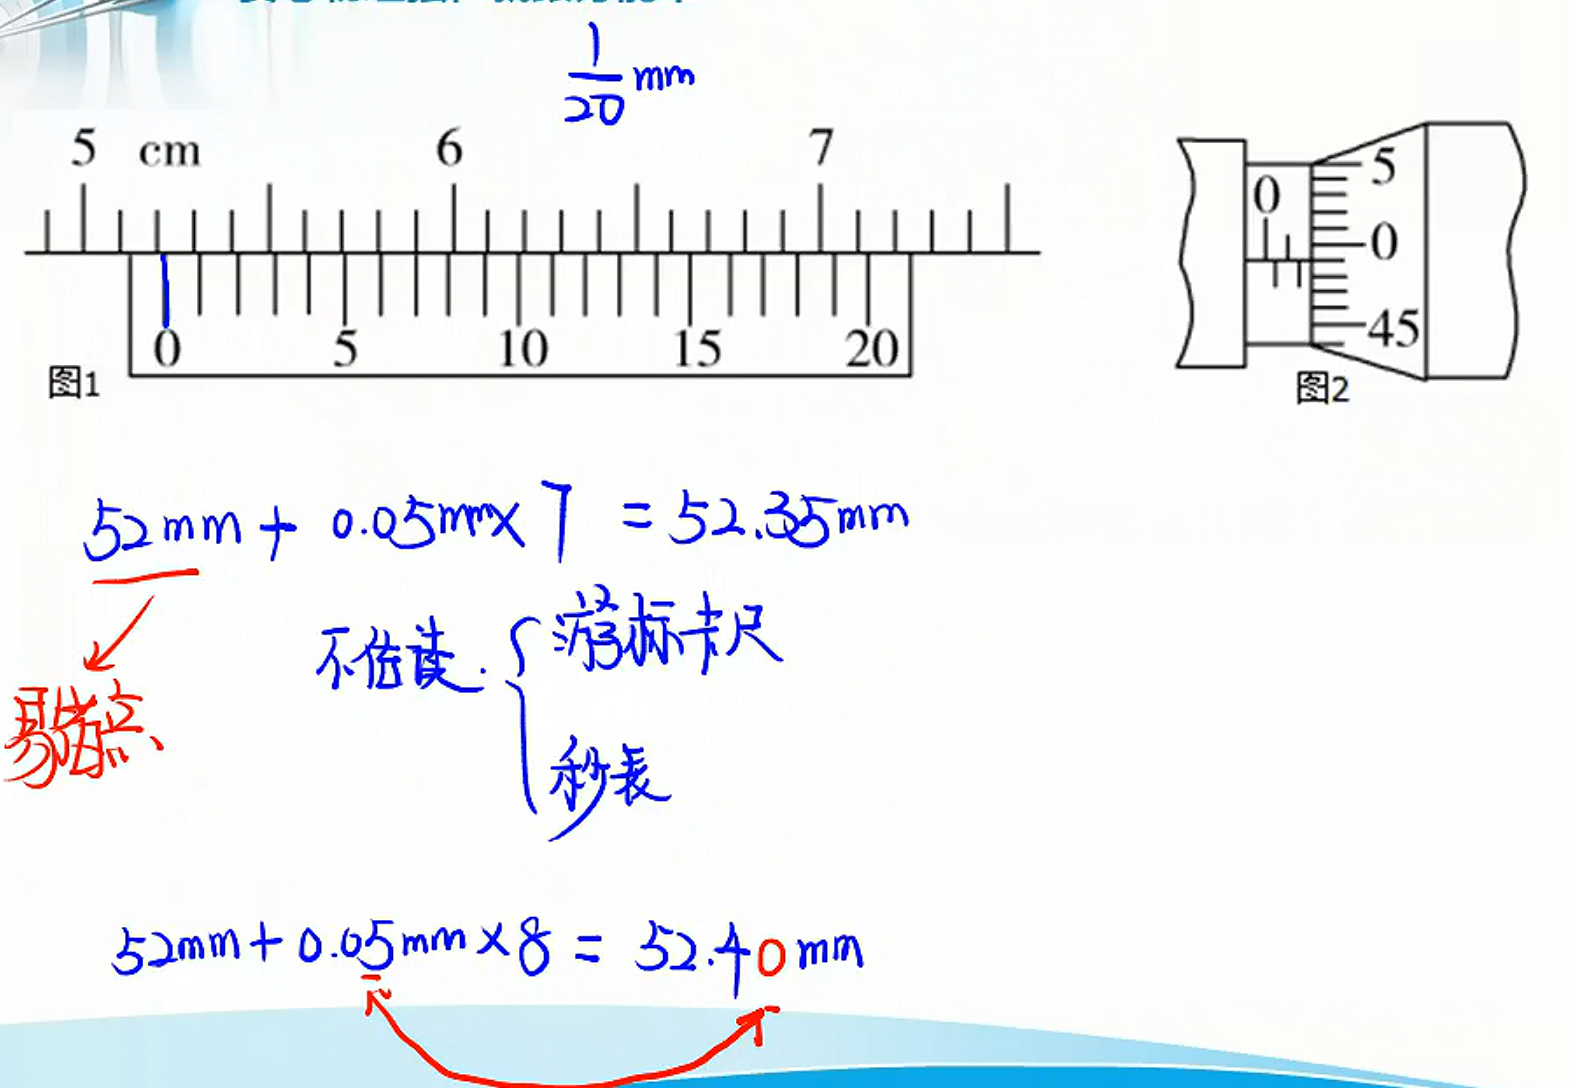 1/20 mm
5 cm 6 7
0 5
0
0 5 10 15 20
45
图1 图2
52mm + 0.05mm×7 = 52.35mm
不估读. { 游标卡尺
易错点、
秒表
52mm+0.05mm×8 = 52.40mm